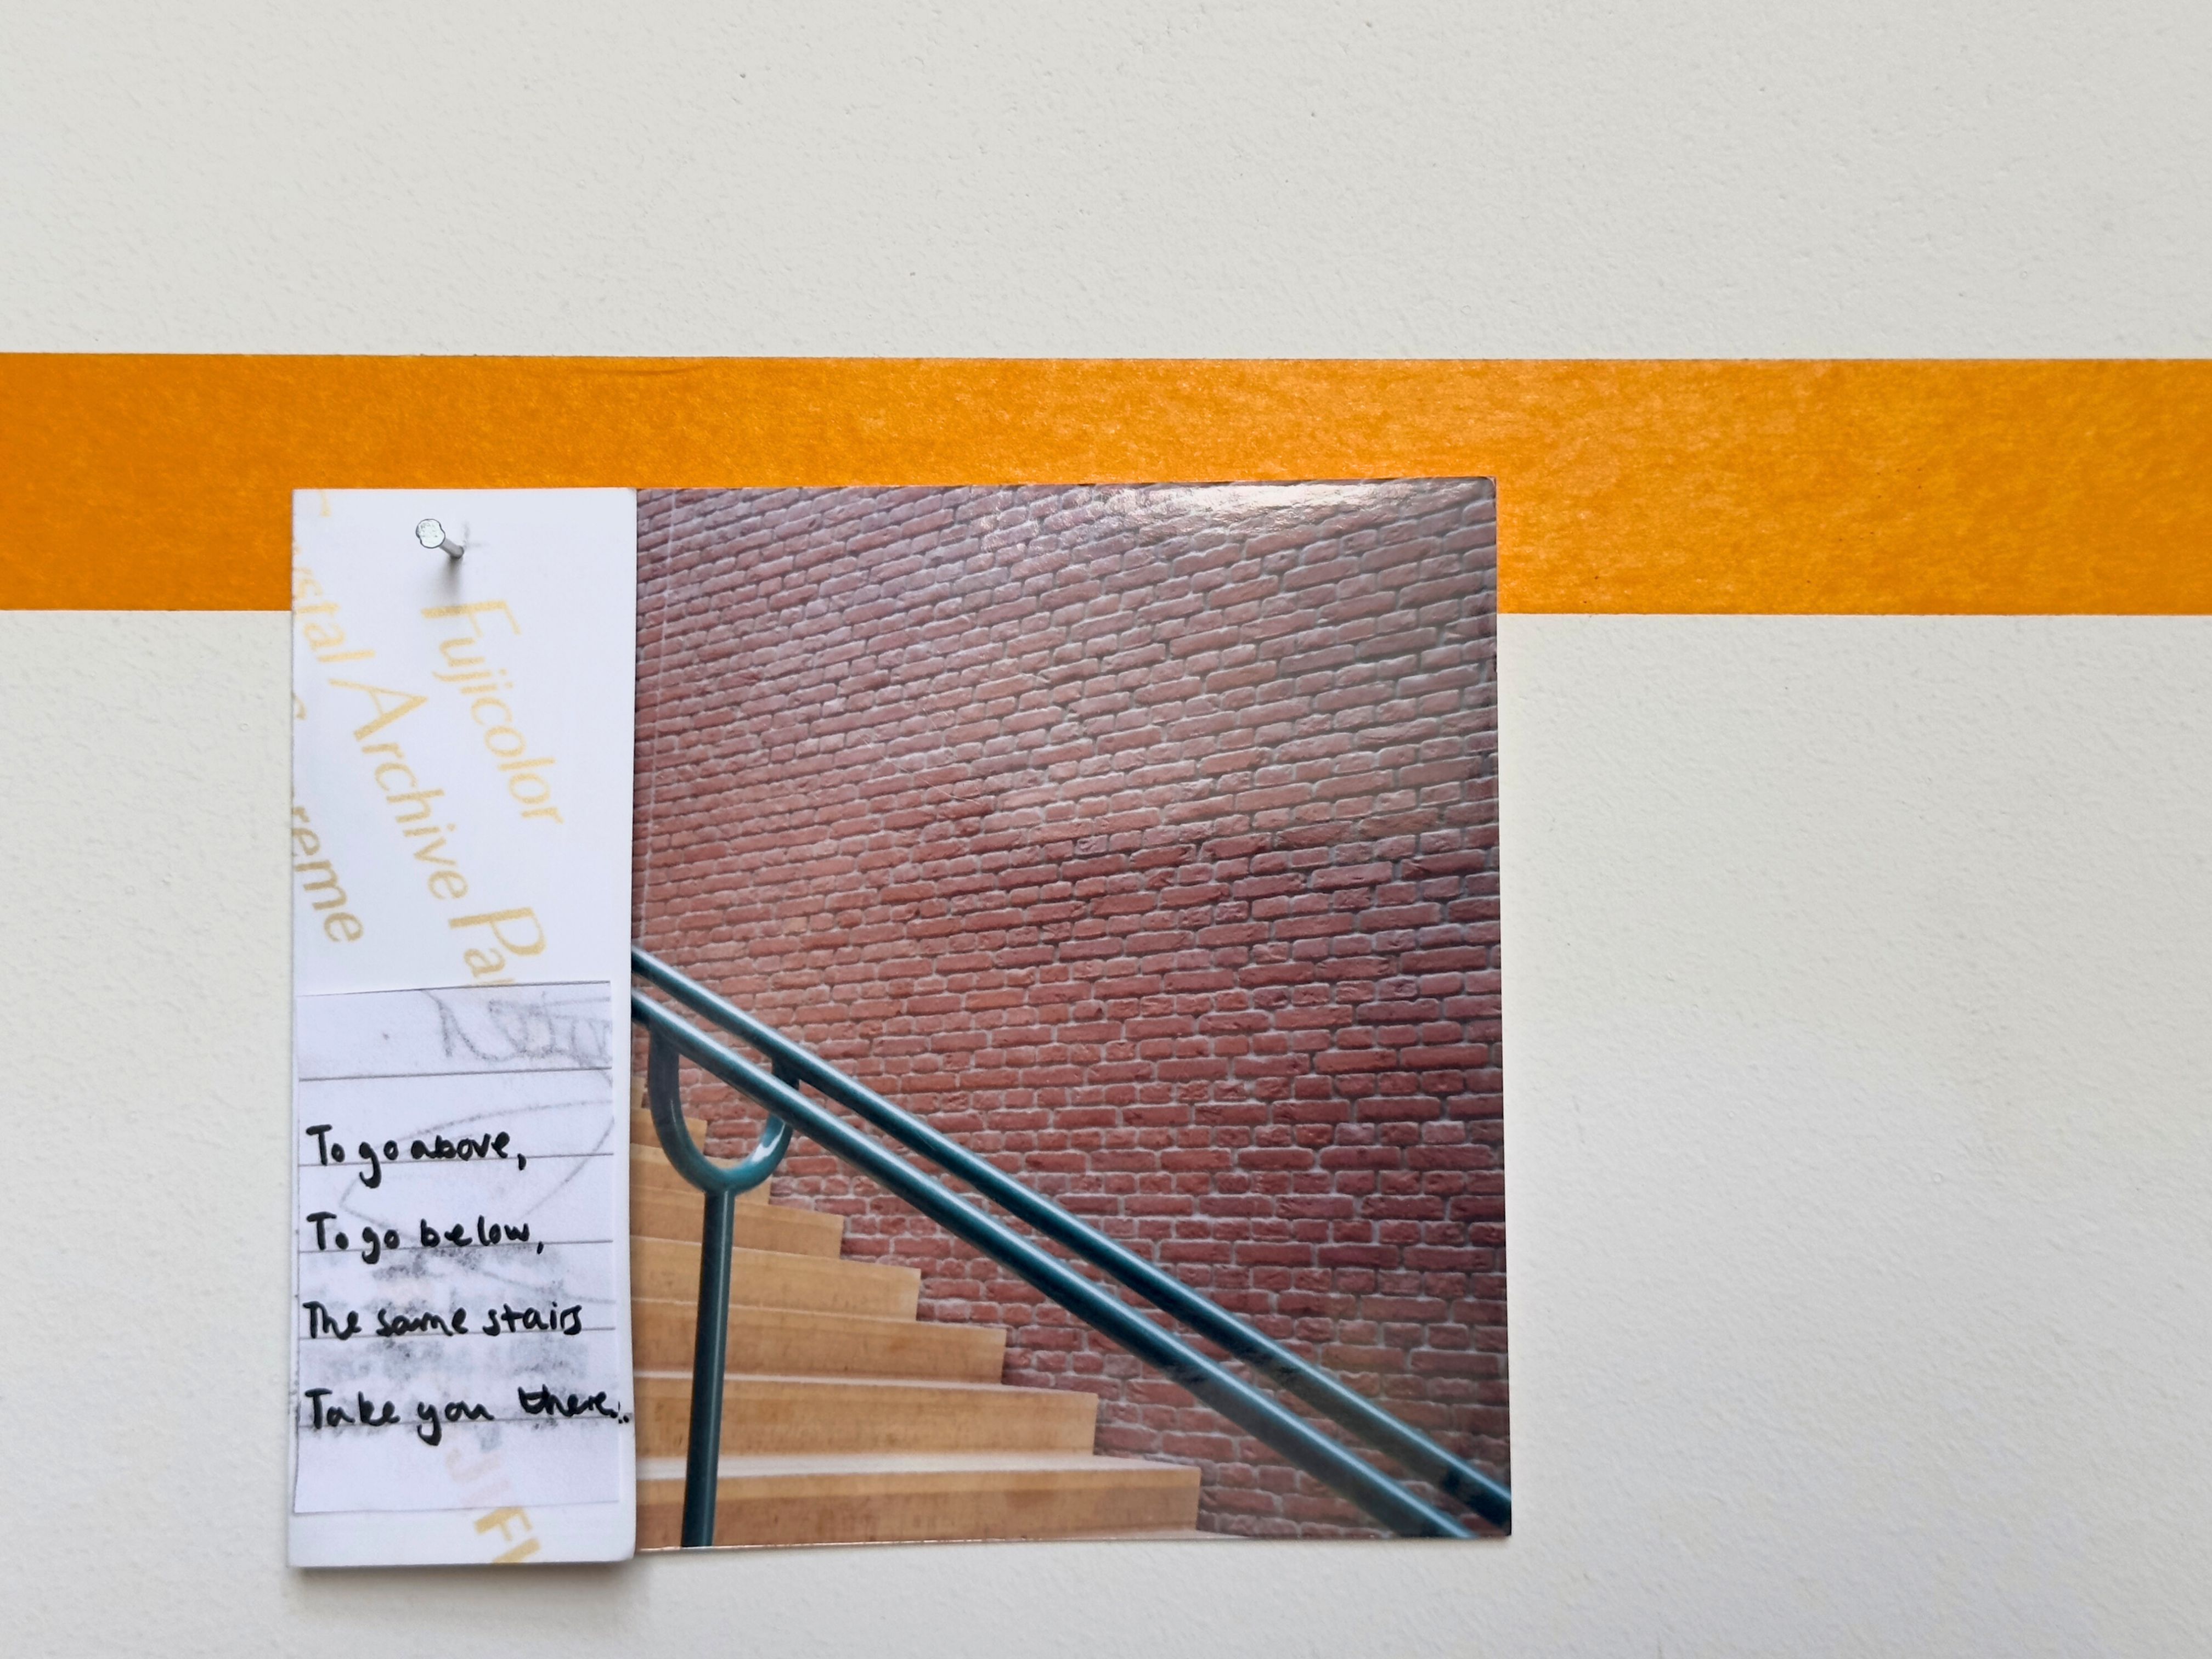 Fujicolor
Archive
To go above,
To go below,
The same stairs
Take you there...